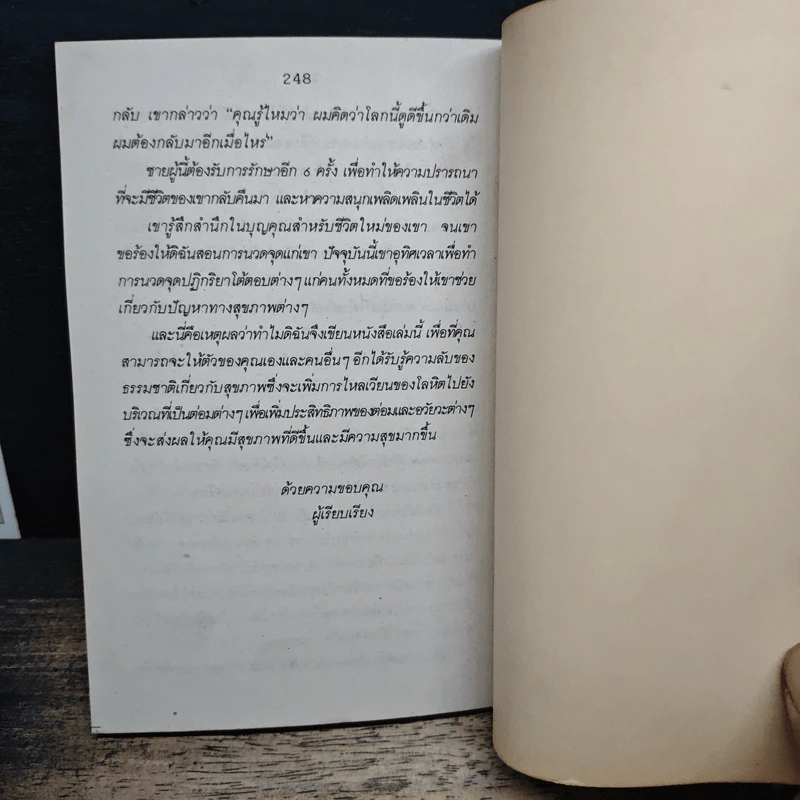 248
กลับ เขากล่าวว่า “คุณรู้ไหมว่า ผมคิดว่าโลกนี้ดูดีขึ้นกว่าเดิม
ผมต้องกลับมาอีกเมื่อไหร่”
ชายผู้นี้ต้องรับการรักษาอีก ๖ ครั้ง เพื่อทำให้ความปรารถนา
ที่จะมีชีวิตของเขากลับคืนมา และหาความสนุกเพลิดเพลินในชีวิตได้
เขารู้สึกสำนึกในบุญคุณสำหรับชีวิตใหม่ของเขา จนเขา
ขอร้องให้ดิฉันสอนการนวดจุดแก่เขา ปัจจุบันนี้เขาอุทิศเวลาเพื่อทำ
การนวดจุดปฏิกริยาโต้ตอบต่างๆ แก่คนทั้งหมดที่ขอร้องให้เขาช่วย
เกี่ยวกับปัญหาทางสุขภาพต่างๆ
และนี่คือเหตุผลว่าทำไมดิฉันจึงเขียนหนังสือเล่มนี้ เพื่อที่คุณ
สามารถจะให้ตัวของคุณเองและคนอื่นๆ อีกได้รับรู้ความลับของ
ธรรมชาติเกี่ยวกับสุขภาพซึ่งจะเพิ่มการไหลเวียนของโลหิตไปยัง
บริเวณที่เป็นต่อมต่างๆ เพื่อเพิ่มประสิทธิภาพของต่อมและอวัยวะต่างๆ
ซึ่งจะส่งผลให้คุณมีสุขภาพที่ดีขึ้นและมีความสุขมากขึ้น
ด้วยความขอบคุณ
ผู้เรียบเรียง